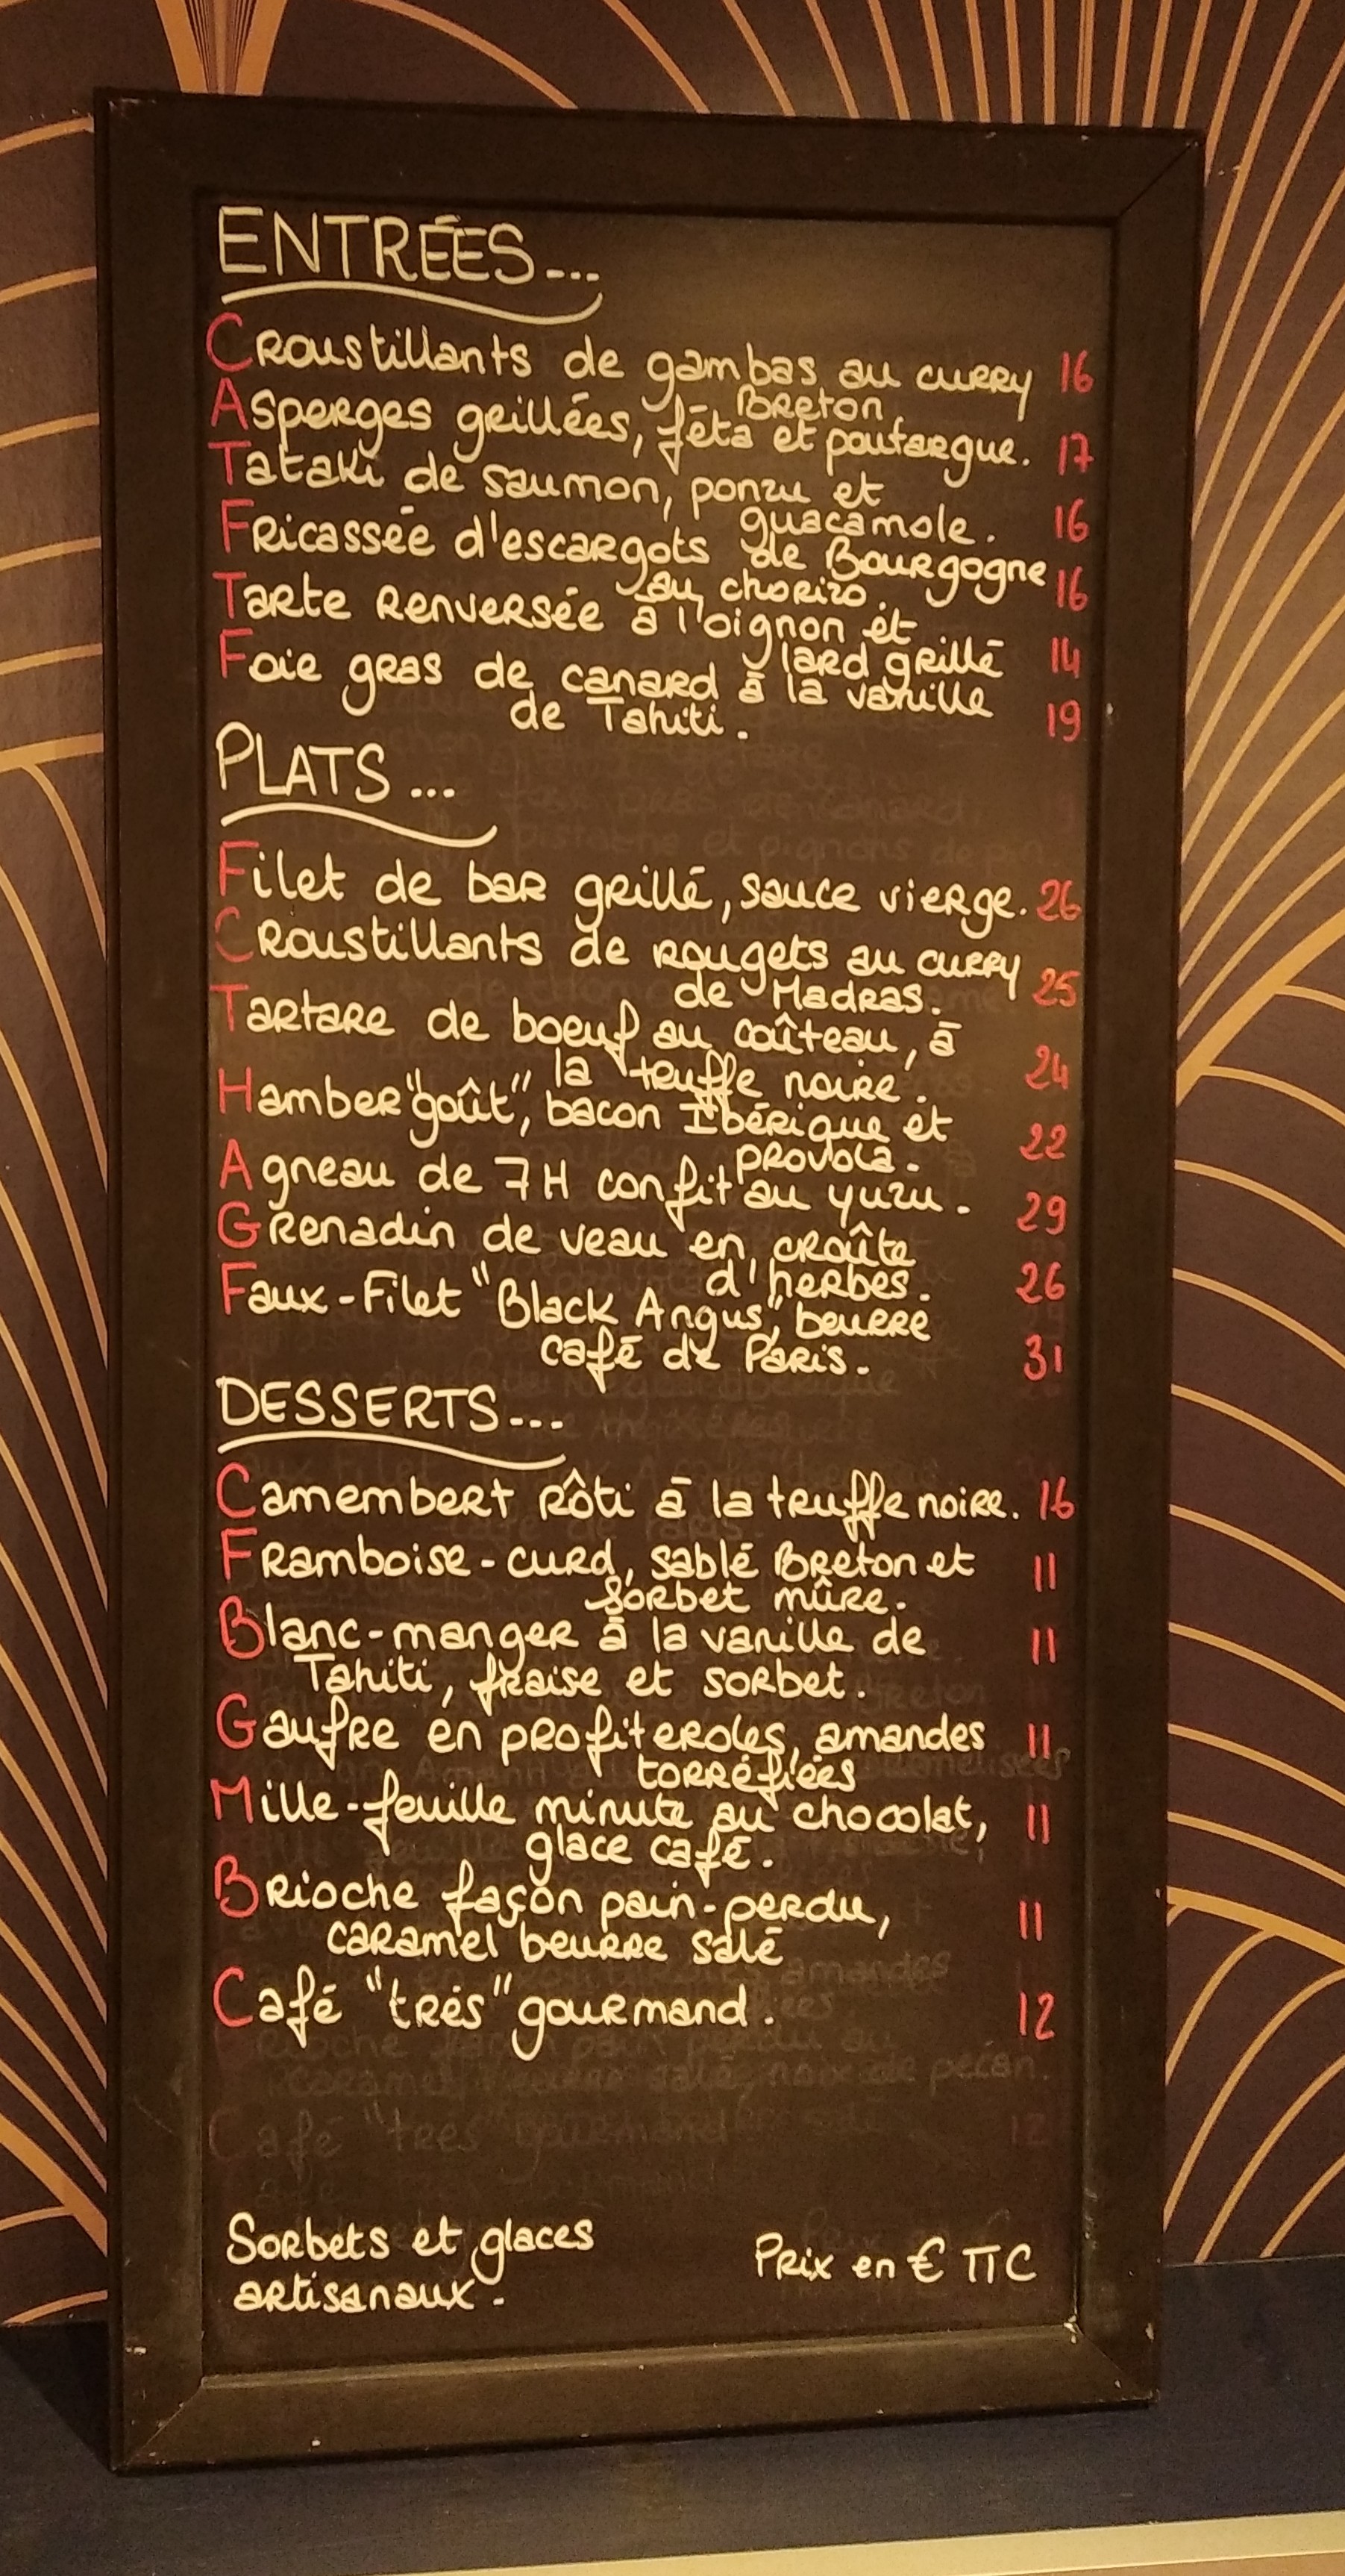 ENTRÉES...
Croustillants de gambas au curry 16
Breton
Asperges grillées, féta et poutargue. 17
Tataki de saumon, ponzu et
guacamole. 16
Fricassée d'escargots de Bourgogne
au chorizo. 16
Tarte renversée à l'oignon et
lard grillé 14
Foie gras de canard à la vanille
de Tahiti. 19
PLATS...
Filet de bar grillé, sauce vierge. 26
Croustillants de rougets au curry
de Madras. 25
Tartare de boeuf au coûteau, à
la truffe noire. 24
Hamber"goût", bacon Ibérique et
provola. 22
Agneau de 7H confit au yuzu. 29
Grenadin de veau en croûte
d'herbes. 26
Faux-Filet "Black Angus", beurre
café de Paris. 31
DESSERTS...
Camembert rôti à la truffe noire. 16
Framboise-curd, sablé Breton et 11
sorbet mûre.
Blanc-manger à la vanille de 11
Tahiti, fraise et sorbet.
Gaufre en profiteroles, amandes 11
torréfiées
Mille-feuille minute au chocolat, 11
glace café.
Brioche façon pain-perdu, 11
caramel beurre salé
Café "trés" gourmand. 12
Sorbets et glaces
artisanaux.
Prix en € TTC